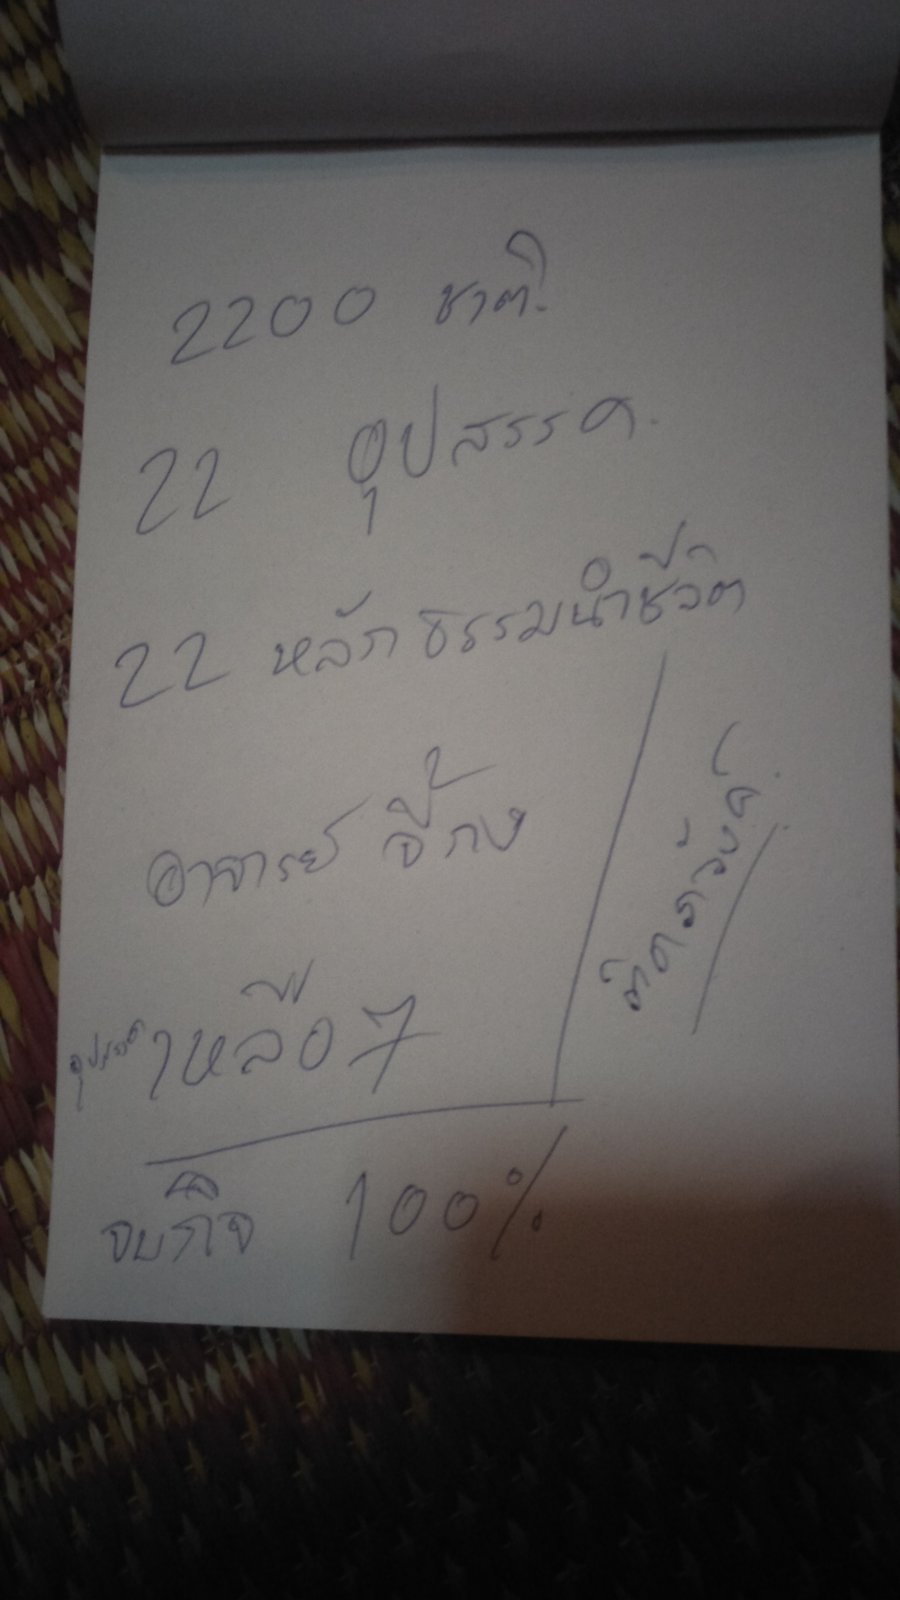 2200 ชาติ.
22 อุปสรรค.
22 หลักธรรมนำชีวิต
อาจารย์ จี้กง
อุปสรรค เหลือ 7
จบกิจ 100%